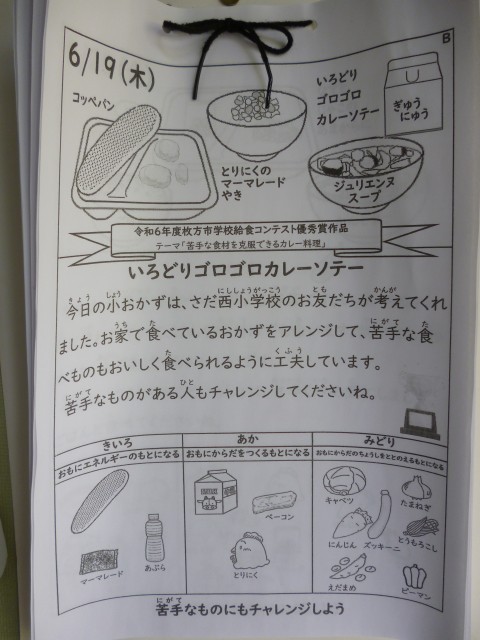 B
6/19(木)
コッペパン
いろどり
ゴロゴロ
カレーソテー
ぎゅう
にゅう
とりにくの
マーマレード
やき
ジュリエンヌ
スープ
令和6年度枚方市学校給食コンテスト優秀賞作品
テーマ「苦手な食材を克服できるカレー料理」
いろどりゴロゴロカレーソテー
今日の小おかずは、さだ西小学校のお友だちが考えてくれ
ました。お家で食べているおかずをアレンジして、苦手な食
べものもおいしく食べられるように工夫しています。
苦手なものがある人もチャレンジしてくださいね。
きいろ
おもにエネルギーのもとになる
マーマレード
あぶら
あか
おもにからだをつくるもとになる
ベーコン
とりにく
みどり
おもにからだのちょうしをととのえるもとになる
キャベツ
たまねぎ
にんじん
ズッキーニ
とうもろこし
えだまめ
ピーマン
苦手なものにもチャレンジしよう